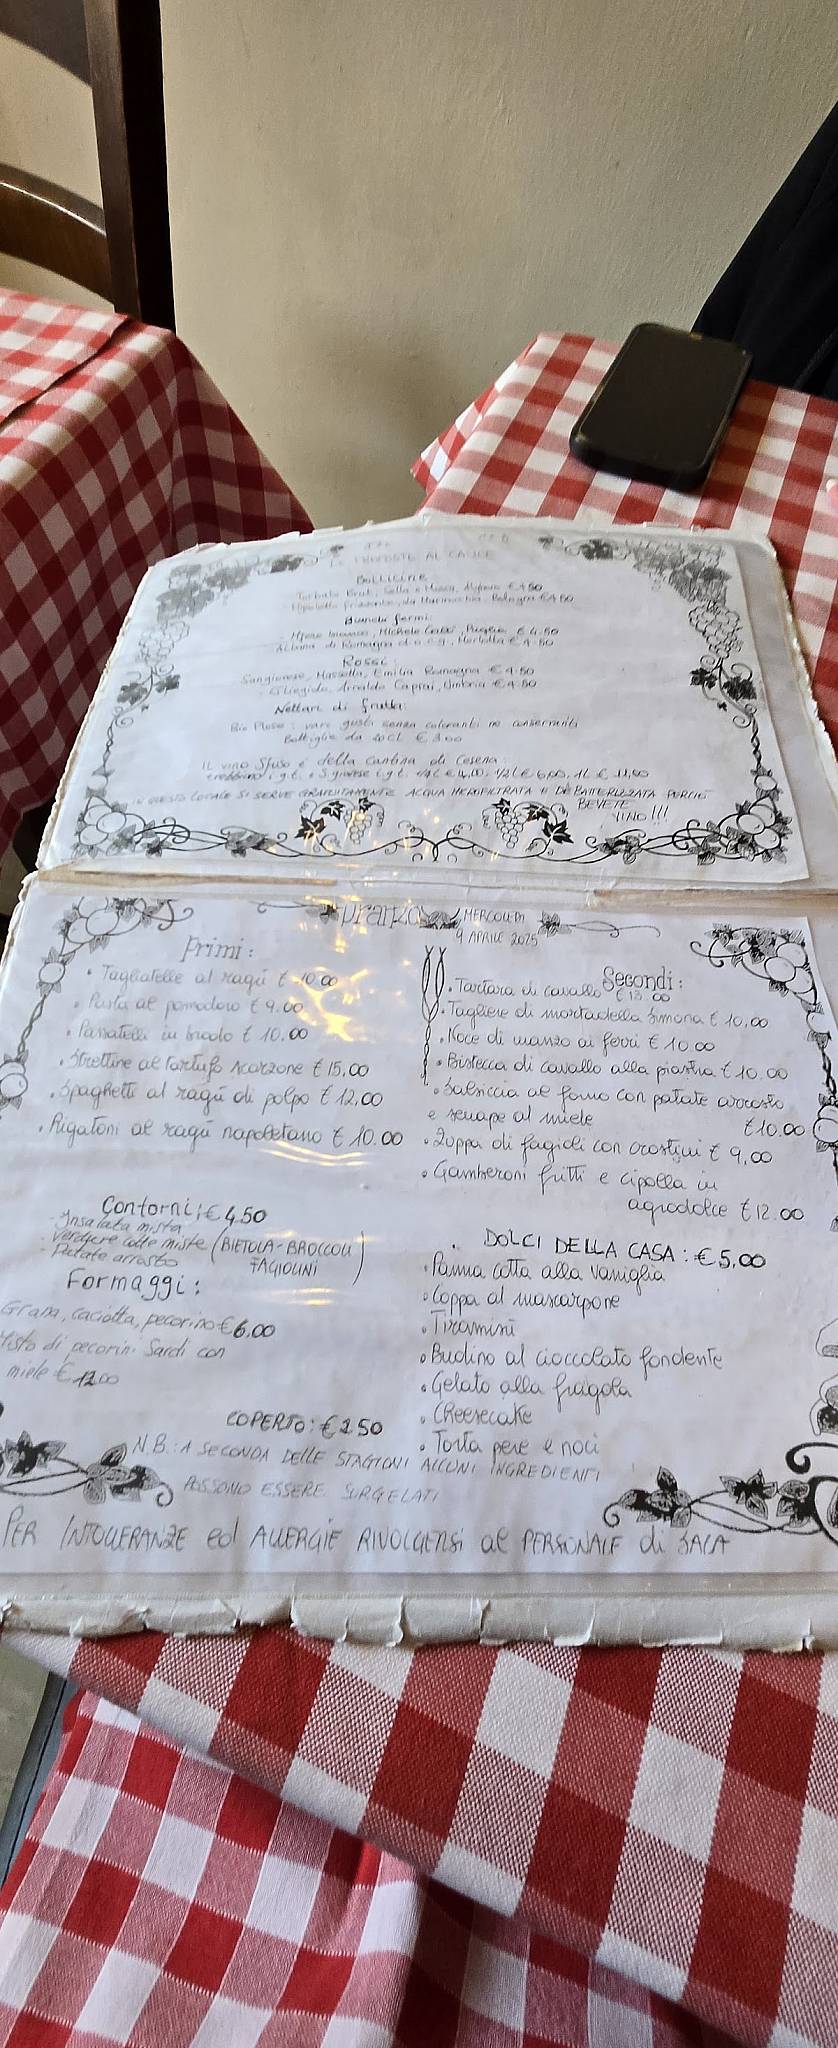 LE PROPOSTE AL CALICE
BOLLICINE
Torbato Brut, Sella e Mosca, Alghero € 4.50
frizzante, da Bologna € 4.50
Bianchi fermi:
bianco, Michele Puglia € 4.50
Albana di Romagna d.o.c.g., € 4.50
Rossi:
Sangiovese, Massella, Emilia Romagna € 4.50
Arnaldo Caprai, Umbria € 4.50
Nettari di frutta:
Bio Plose: vari gusti senza coloranti ne conservanti
Bottiglie da 20CL € 3.00
IL vino sfuso è della cantina di Cesena:
trebbiano i.g.t. e i.g.t. 1/4 L € 4,00, 1/2 L € 6,00, 1L € 11,00
IN QUESTO LOCALE SI SERVE GRATUITAMENTE ACQUA MICROFILTRATA E DEBATTERIZZATA PERCIÒ
BEVETE
VINO!!!
pranzo MERCOLEDì
9 APRILE 2025
Primi:
• Tagliatelle al ragù € 10.00
• Pasta al pomodoro € 9.00
• Passatelli in brodo € 10.00
• Strettine al tartufo scorzone € 15,00
• Spaghetti al ragù di polpo € 12,00
• Rigatoni al ragù napoletano € 10.00
Contorni: € 4,50
- Insalata mista
- Verdure cotte miste (BIETOLA - BROCCOLI
FAGIOLINI)
- Patate arrosto
Formaggi:
Grana, caciotta, pecorino € 6.00
Misto di pecorini Sardi con
miele € 12.00
Secondi:
• Tartara di cavallo € 13.00
• Tagliere di mortadella Simona € 10,00
• Noce di manzo ai ferri € 10.00
• Bistecca di cavallo alla piastra € 10.00
• Salsiccia al forno con patate arrosto
e senape al miele € 10.00
• Zuppa di fagioli con crostini € 9,00
• Gamberoni fritti e cipolla in
agrodolce € 12.00
DOLCI DELLA CASA: € 5,00
• Panna cotta alla vaniglia
• Coppa al mascarpone
• Tiramisù
• Budino al cioccolato fondente
• Gelato alla fragola
• Cheesecake
• Torta pere e noci
COPERTO: € 2.50
N.B.: A SECONDA DELLE STAGIONI ALCUNI INGREDIENTI
POSSONO ESSERE SURGELATI
PER INTOLLERANZE ed ALLERGIE RIVOLGERSI al PERSONALE di SALA